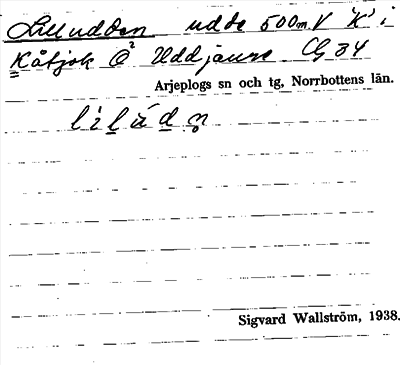 Lilludden udde 500m V "K" i
Kåtjok Ö² Uddjaure CG 34
Arjeplogs sn och tg, Norrbottens län.
lilúdn̥
Sigvard Wallström, 1938.